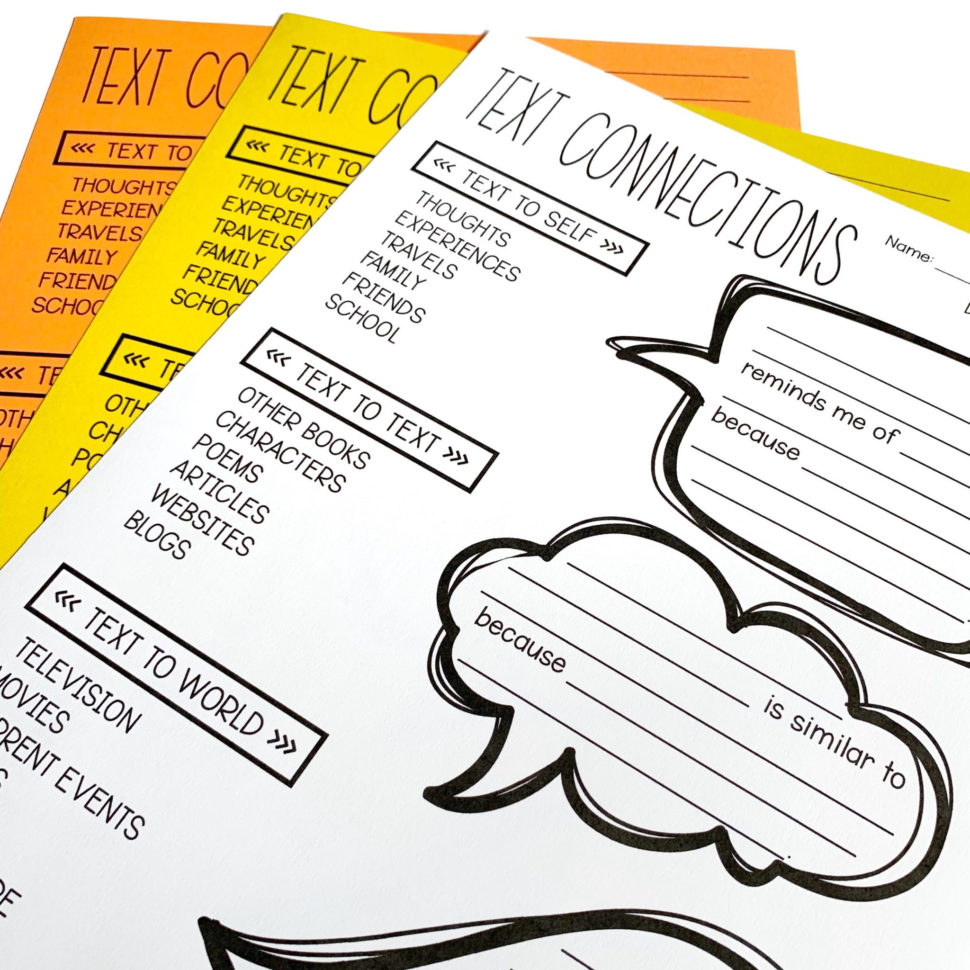 TEXT CO
<<< TEXT TO
THOUGHTS
EXPERIEN
TRAVELS
FAMILY
FRIEND
SCHOO
<<< TE
OTH
TEXT CO
<<< TEXT TO
THOUGHTS
EXPERIEN
TRAVELS
FAMILY
FRIEND
SCHOO
<<< TE
OTH
CH
PO
A
TEXT CONNECTIONS
Name:
<<< TEXT TO SELF >>>
THOUGHTS
EXPERIENCES
TRAVELS
FAMILY
FRIENDS
SCHOOL
reminds me of
because
<<< TEXT TO TEXT >>>
OTHER BOOKS
CHARACTERS
POEMS
ARTICLES
WEBSITES
BLOGS
is similar to
because
<<< TEXT TO WORLD >>>
TELEVISION
MOVIES
RRENT EVENTS
S
DE